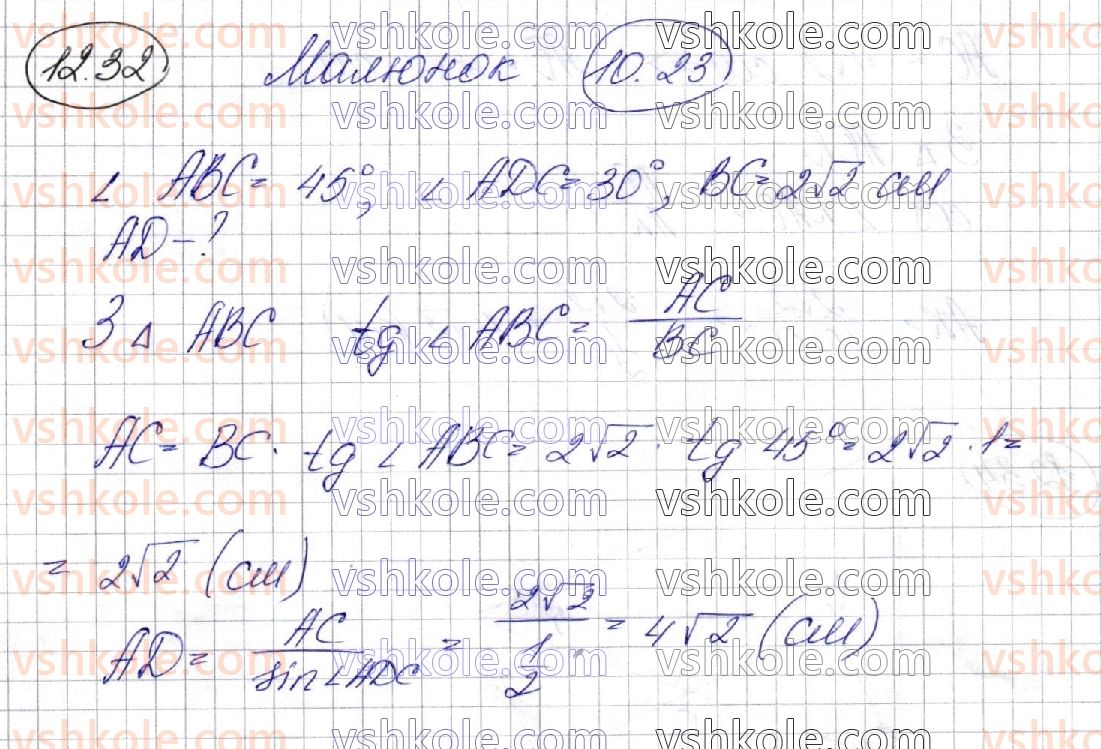 12.32 Малюнок 10.23
∠ ABC = 45°, ∠ ADC = 30°, BC = 2√2 см
AD - ?
З △ ABC tg ∠ ABC = AC/BC
AC = BC · tg ∠ ABC = 2√2 · tg 45° = 2√2 · 1 =
= 2√2 (см)
AD = AC/sin∠ADC = 2√2/(1/2) = 4√2 (см)
vshkole.com